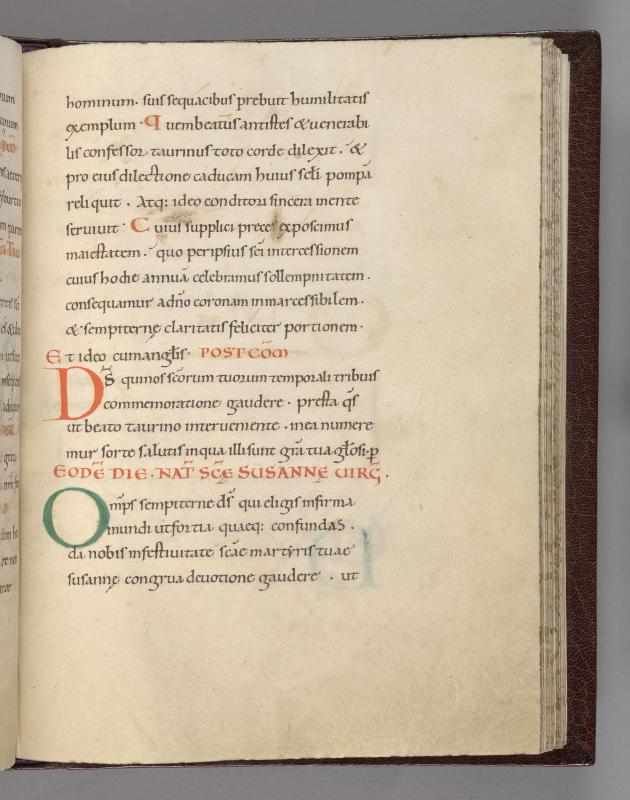 hominum. suis sequacibus prebuit humilitatis
exemplum. Quem beatus antistes & uenerabi
lis confessor taurinus toto corde dilexit. &
pro eius dilectione caducam huius scli pompā
reliquit. Atq: ideo conditori sincera mente
seruiuit. Cuius supplici prece exposcimus
maiestatem. quo per ipsius sci intercessionem
cuius hodie annuā celebramus sollempnitatem.
consequamur a dn̄o coronam inmarcessibilem.
& sempiternę claritatis feliciter portionem.
Et ideo cum anglis. POST COM̄
DS̄ qui nos sc̄orum tuorum temporali tribuis
commemoratione gaudere. presta qs̄
ut beato taurino interueniente. in ea numere
mur sorte salutis in qua illi sunt gr̄a tua gl̄osi. ꝑ
EODĒ DIE. NAT̄ SC̄Ę SUSANNĘ UIRḠ.
Om̄ps sempiterne ds̄ qui eligis infirma
mundi ut fortia quaeq: confundas.
da nobis in festiuitate sc̄ae martyris tuae
susannę congrua deuotione gaudere. ut